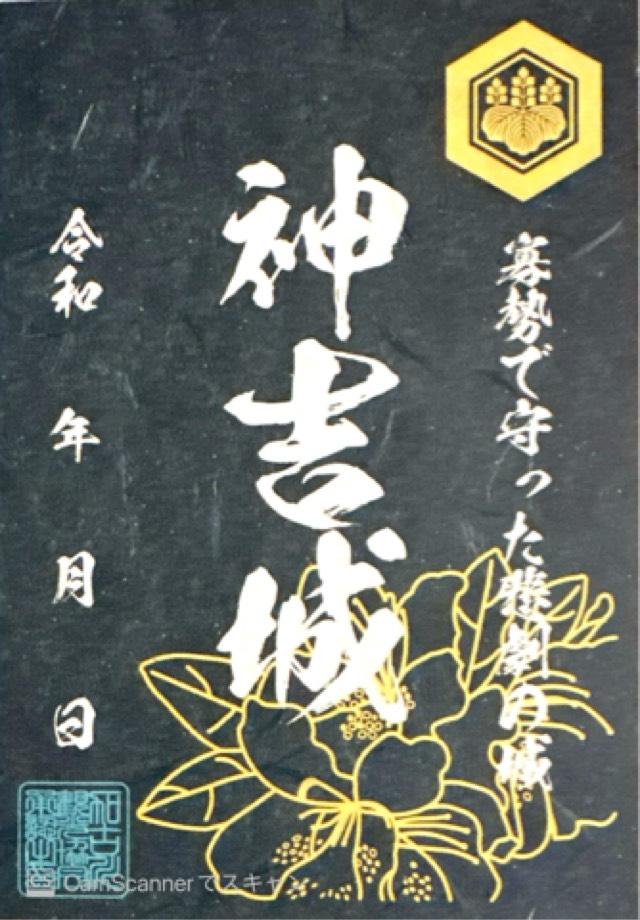 寡勢で守った悲劇の城
神吉城
令和 年 月 日
CamScannerでスキャン